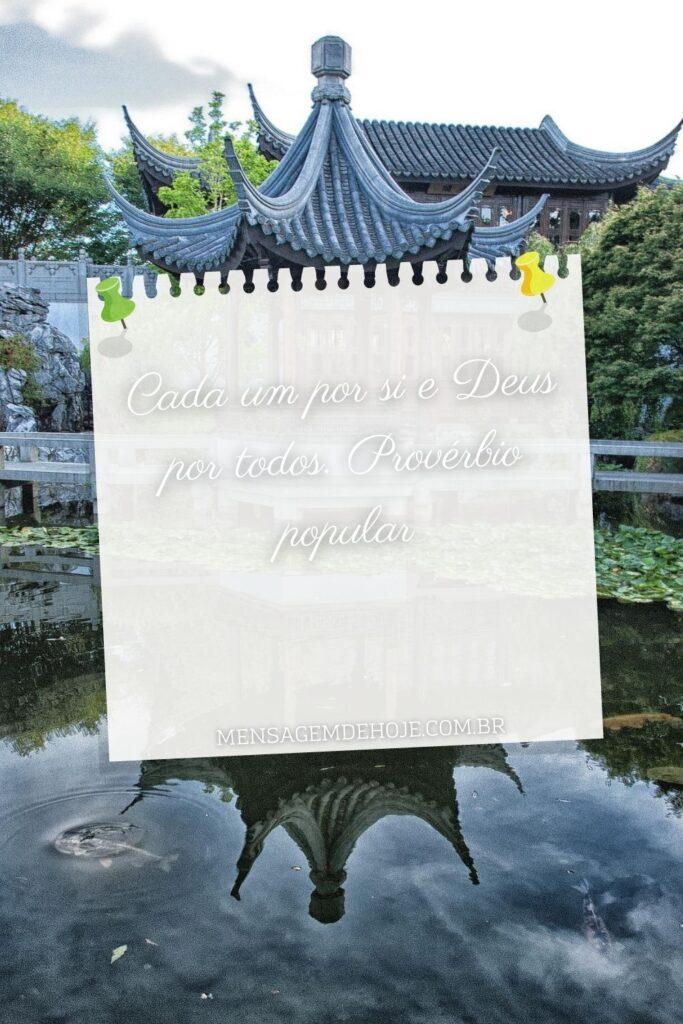 Cada um por si e Deus
por todos. Provérbio
popular
MENSAGEMDEHOJE.COM.BR